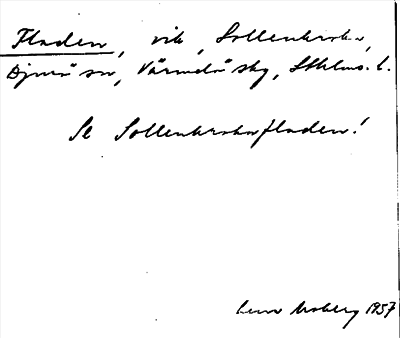 Fladen, vik, Sollenkroka,
Djurö sn, Värmdö skg, Sthlms l.
Se Sollenkrokafladen!
Moberg 1957